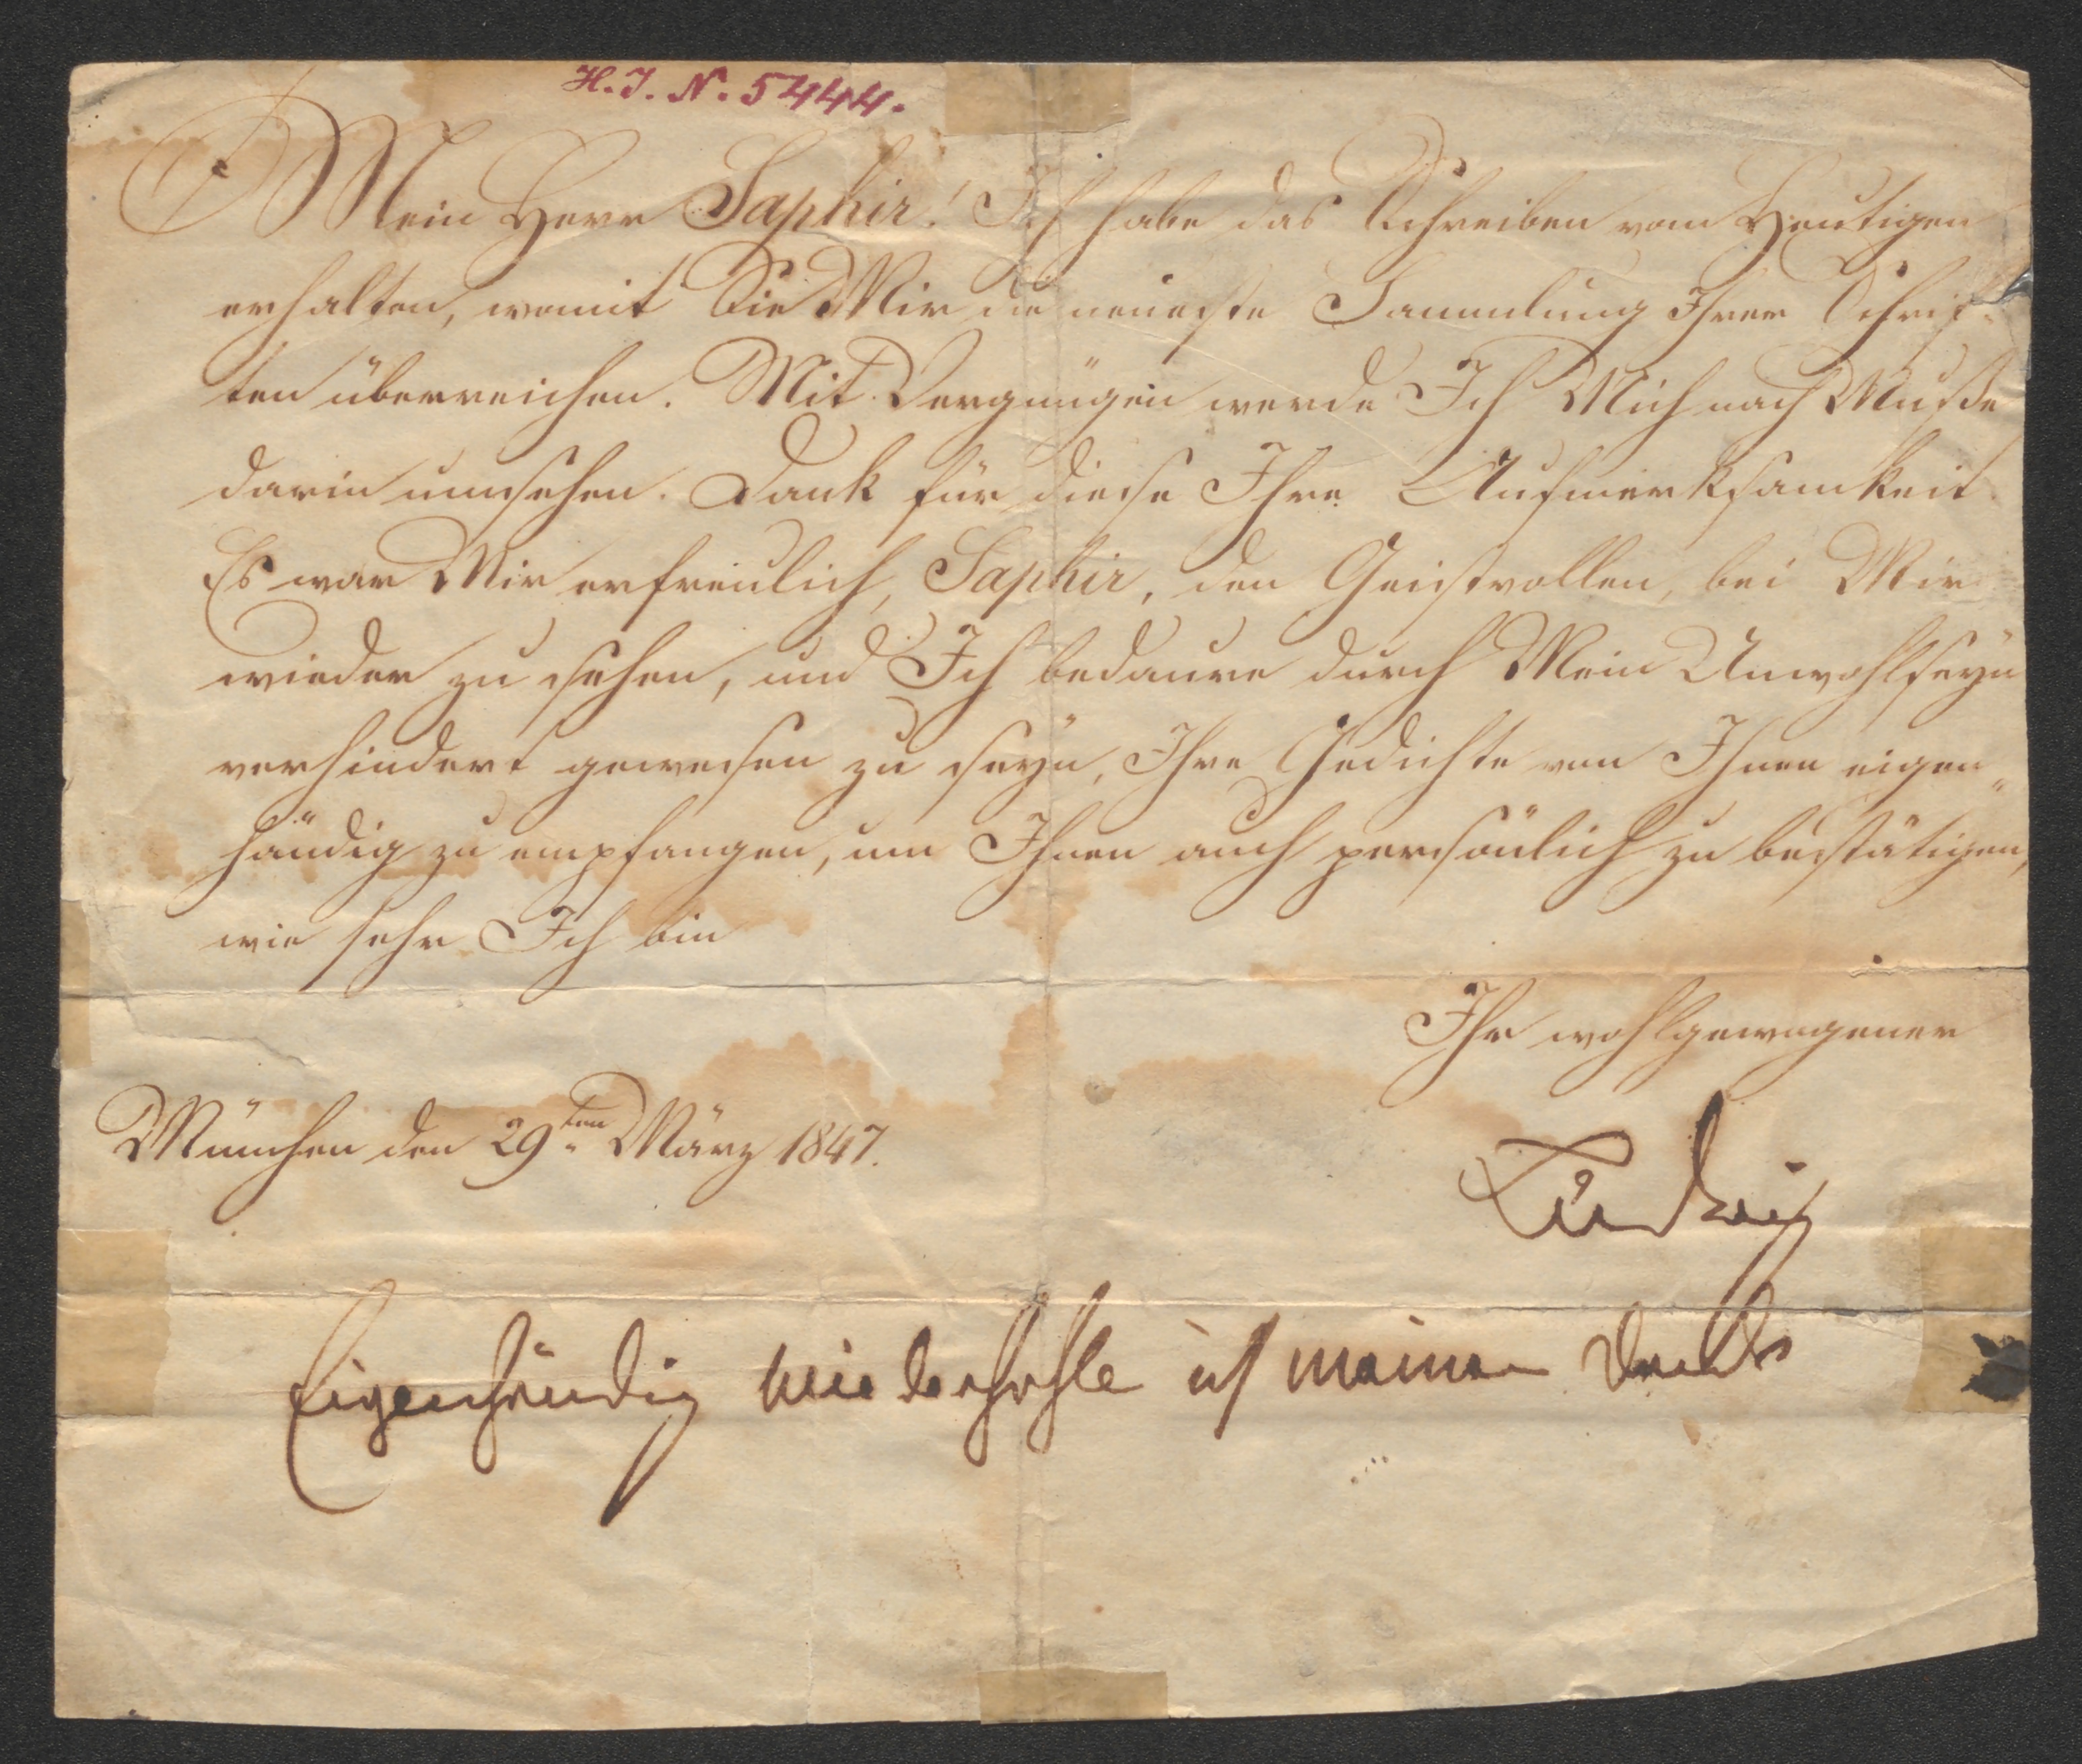 H. J. N. 5444.
Mein Herr Saphir! Ich habe das Schreiben vom Heutigen
erhalten, womit Sie Mir die neueste Sammlung Ihrer Schrif-
ten überreichen. Mit Vergnügen werde Ich Mich nach Muße
darin umsehen. Dank für diese Ihre Aufmerksamkeit.
Es war Mir erfreulich, Saphir, den Geistvollen, bei Mir
wieder zu sehen, und Ich bedaure durch Mein Unwohlseyn
verhindert gewesen zu seyn, Ihre Gedichte von Ihnen eigen„
händig zu empfangen, um Ihnen auch persönlich zu bestätigen,
wie sehr Ich bin
Ihr wohlgewogener
München den 29ten März 1847.
Ludwig
Eigenhändig wiederhohle ich meinen Dank